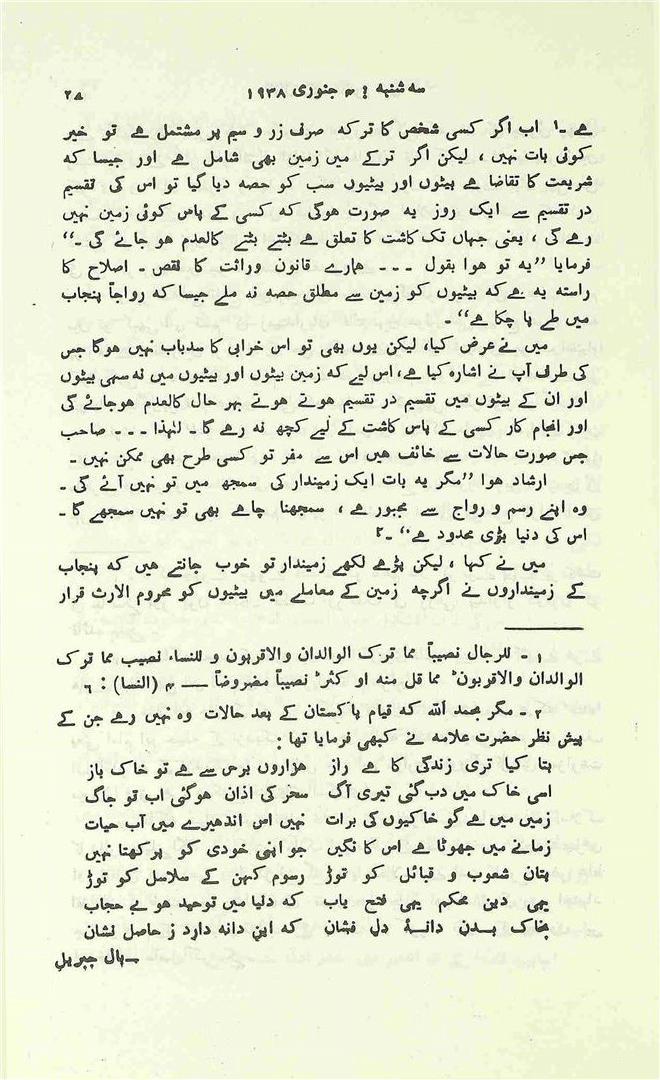 سہ شنبہ : ۴ جنوری ۱۹۳۸
۲۷
ہے ۔۱ اب اگر کسی شخص کا ترکہ صرف زر و سیم پر مشتمل ہے تو خیر
کوئی بات نہیں ، لیکن اگر ترکے میں زمین بھی شامل ہے اور جیسا کہ
شریعت کا تقاضا ہے بیٹوں اور بیٹیوں سب کو حصہ دیا گیا تو اس کی تقسیم
در تقسیم سے ایک روز یہ صورت ہوگی کہ کسی کے پاس کوئی زمین نہیں
رہے گی ، یعنی جہاں تک کاشت کا تعلق ہے بٹتے بٹتے کالعدم ہو جائے گی ۔‘‘
فرمایا ’’یہ تو ہوا بقول ۔ ۔ ۔ ہمارے قانون وراثت کا نقص ۔ اصلاح کا
راستہ یہ ہے کہ بیٹیوں کو زمین سے مطلق حصہ نہ ملے جیسا کہ رواجاً پنجاب
میں طے پا چکا ہے‘‘ ۔
میں نے عرض کیا، لیکن یوں بھی تو اس خرابی کا سدباب نہیں ہوگا جس
کی طرف آپ نے اشارہ کیا ہے، اس لیے کہ زمین بیٹوں اور بیٹیوں میں نہ سہی بیٹوں
اور ان کے بیٹوں میں تقسیم در تقسیم ہوتے ہوتے بہر حال کالعدم ہوجائے گی
اور انجام کار کسی کے پاس کاشت کے لیے کچھ نہ رہے گا ۔ لہٰذا ۔ ۔ ۔ صاحب
جس صورت حالات سے خائف ہیں اس سے مفر تو کسی طرح بھی ممکن نہیں ۔
ارشاد ہوا ’’مگر یہ بات ایک زمیندار کی سمجھ میں تو نہیں آئے گی ۔
وہ اپنے رسم و رواج سے مجبور ہے ، سمجھنا چاہے بھی تو نہیں سمجھے گا ۔
اس کی دنیا بڑی محدود ہے‘‘ ۔۲
میں نے کہا ، لیکن پڑھے لکھے زمیندار تو خوب جانتے ہیں کہ پنجاب
کے زمینداروں نے اگرچہ زمین کے معاملے میں بیٹیوں کو محروم الارث قرار
۱ ۔ للرجال نصیباً مما ترک الوالدان والاقربون و للنساء نصیب مما ترک
الوالدان والاقربون ط مما قل منہ او کثر ط نصیباً مضروضاً — ۴ (النسا) : ٦
۲ ۔ مگر بحمد اللہ کہ قیام پاکستان کے بعد حالات وہ نہیں رہے جن کے
پیش نظر حضرت علامہ نے کبھی فرمایا تھا :
بتا کیا تری زندگی کا ہے راز ہزاروں برس سے ہے تو خاک باز
اسی خاک میں دب گئی تیری آگ سحر کی اذان ہوگئی اب تو جاگ
زمیں میں ہے گو خاکیوں کی برات نہیں اس اندھیرے میں آب حیات
زمانے میں جھوٹا ہے اس کا نگیں جو اپنی خودی کو پرکھتا نہیں
بتان شعوب و قبائل کو توڑ رسوم کہن کے سلاسل کو توڑ
یہی دین محکم یہی فتح یاب کہ دنیا میں توحید ہو بے حجاب
بخاک بدن دانۂ دل فشان کہ این دانہ دارد ز حاصل نشان
—بال جبریل